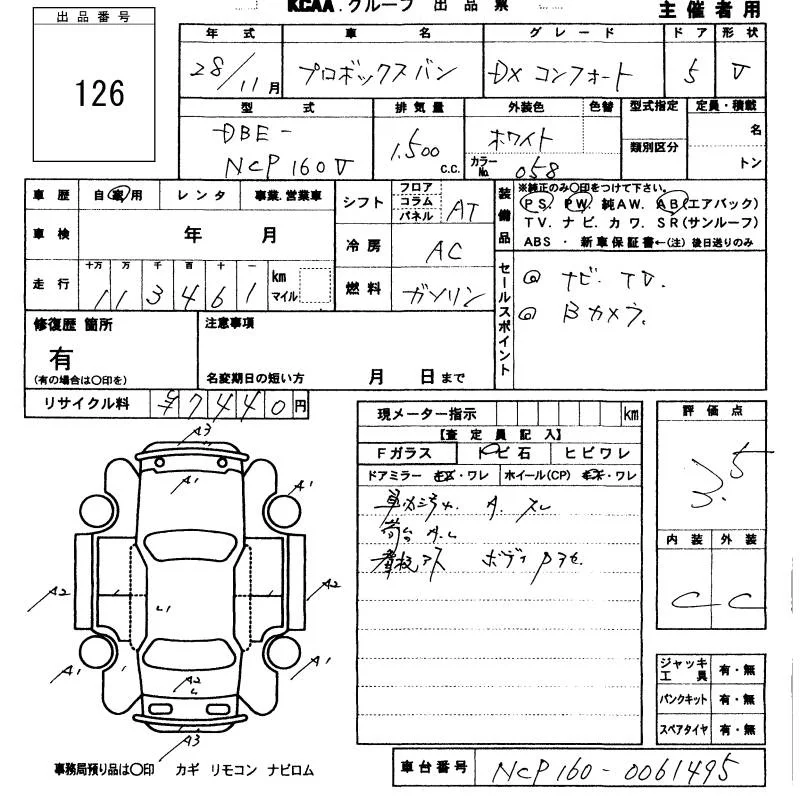 KCAA.グループ 出品票
主催者用
出品番号
126
年式 車名 グレード ドア 形状
28/11月 プロボックスバン DXコンフォート 5 V
型式 排気量 外装色 色替 型式指定 定員・積載
DBE-
NCP160V
1,500 C.C.
ホワイト
カラーNo. 058
類別区分
名
トン
車歴 自家用 レンタ 事業.営業車
車検 年 月
走行 十万 万 千 百 十 一
1 1 3 4 6 1 km マイル
シフト フロア コラム パネル AT
冷房 AC
燃料 ガソリン
装備品
※純正のみ○印をつけて下さい。
PS. PW. 純AW. AB(エアバック)
TV. ナビ. カワ. SR(サンルーフ)
ABS ・ 新車保証書←(注) 後日送りのみ
セールスポイント
◎ ナビ. TV.
◎ Bカメラ.
修復歴 箇所
有
(有の場合は○印を)
注意事項
名変期日の短い方 月 日まで
リサイクル料 ¥7440円
現メーター指示 km
【査定員記入】
Fガラス トビ石 ヒビワレ
ドアミラー ・ワレ ホイール(CP) ・ワレ
A. スレ
荷台
ボディ
評価点
3.5
内装 外装
C C
ジャッキ工具 有・無
パンクキット 有・無
スペアタイヤ 有・無
A3
A1
A1
A1
A2
A2
L1
A1
A1
A2
A3
事務局預り品は○印 カギ リモコン ナビロム
車台番号 NCP160-0061495